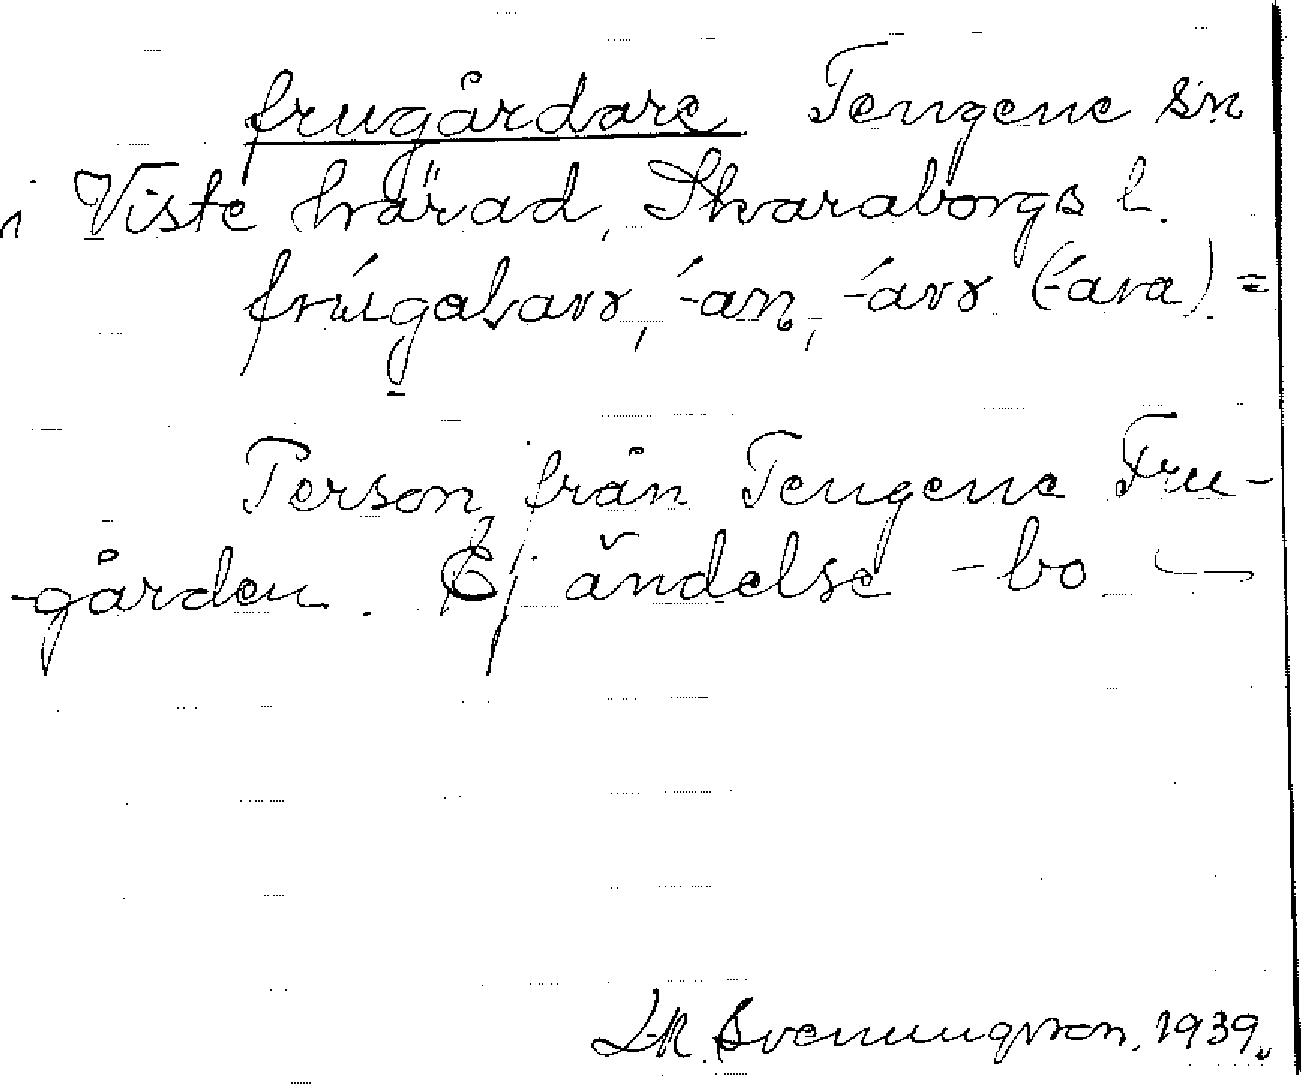 frugårdare Tengene sn
i Viste härad, Skaraborgs l.
-an,
Person från Tengene Fru-
gården. Ej ändelse -bo
Svenungsson. 1939.